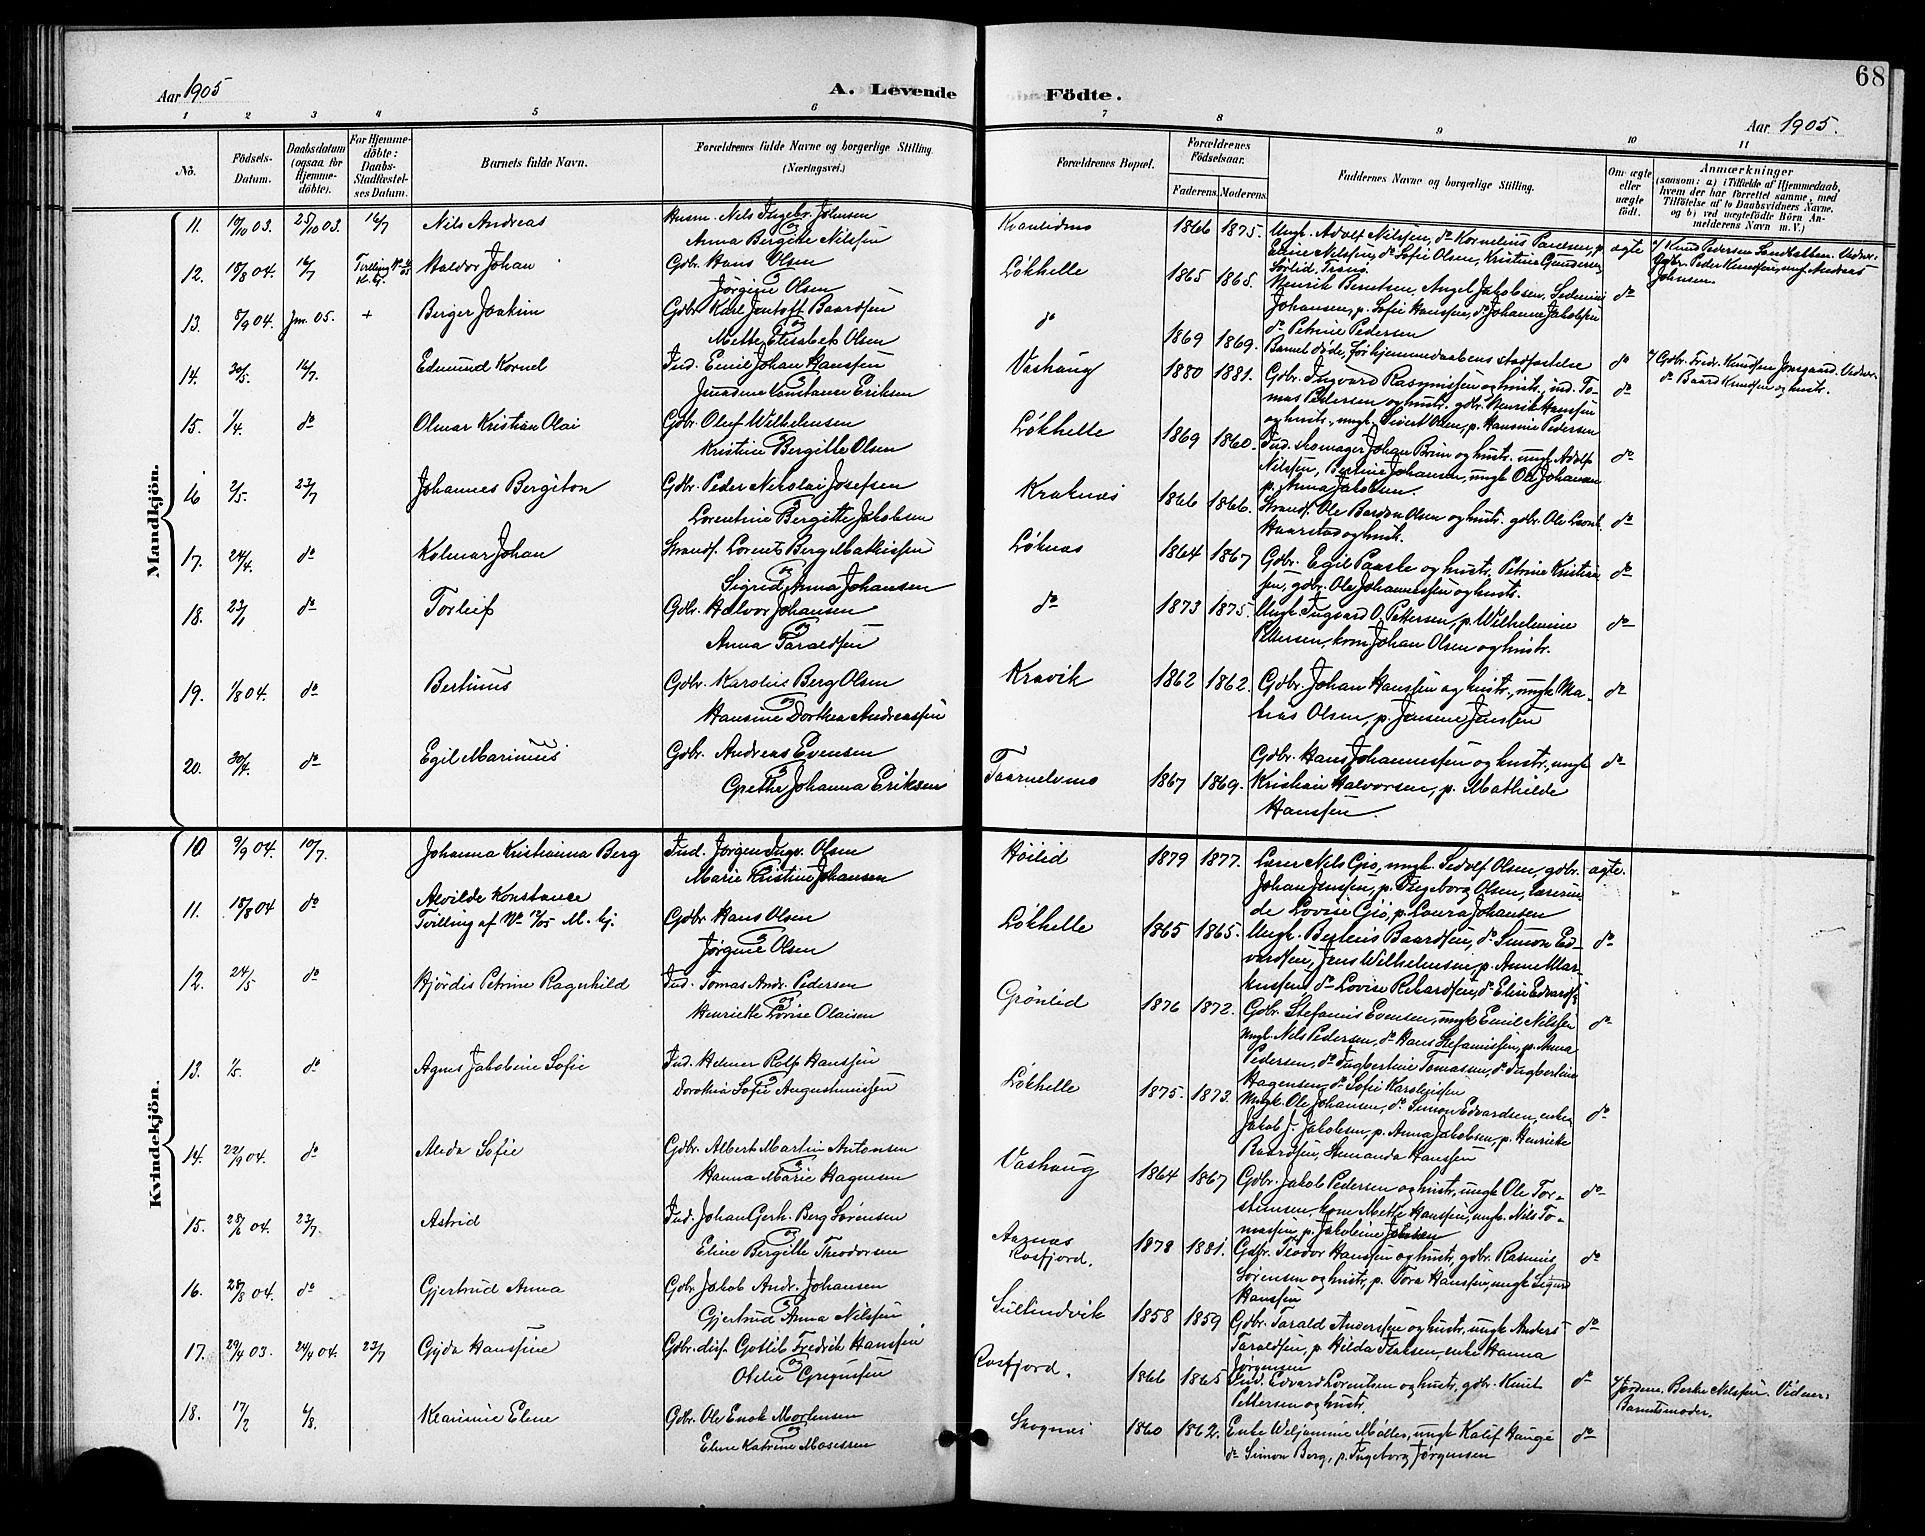 68
Aar 1905
A. Levende
Födte.
Aar 1905.
1 2 3 4 5 6 7 8 9 10 11
No.
Födsels-Datum.
Daabsdatum (ogsaa for Hjemme-döbte).
For Hjemme-döbte: Daabs-Stadfæstel-ses Datum.
Barnets fulde Navn.
Forældrenes fulde Navne og borgerlige Stilling.
(Næringsvei.)
Forældrenes Bopæl.
Forældrenes Födselsaar.
Faderens. Moderens.
Faddernes Navne og borgerlige Stilling.
Om ægte eller uægte födt.
Anmærkninger
(saasom: a) i Tilfælde af Hjemmedaab,
hvem der har forrettet samme, med
Tilföielse af to Daabsvidners Navne.
og b) ved uægtefödte Börn An-
melderens Navn m. V.)
Mandkjön.
11. 19/10 03. 25/10 03. 16/7 Nils Andreas
Husm. Nils Ingebr. Johnsen
og
Anna Bergitte Nilssen
Kvanlidmo 1866 1875.
Ungk. Adolf Nilssen, do Kornelius Paulsen, p.
Eline Nilssen, do Sofie Olsen, Kristine Gundersen
Sørlid, Tranø.
ægte
12. 18/8 04. 16/7 Haldor Johan
Gdbr. Hans Olsen
og
Jörgine Olsen
Løkhelle 1865 1865.
Henrik Berntsen, Angel Jakobsen,
Johansen, p. Sofie Hanssen, do Johanna Jakobsen
do Petrine Pedersen
do
13. 8/9 04. Jm. 05. + Berger Joakim
Gdbr. Karl Jentoft Baardsen
og
Mette Elisabet Olsen
do 1869 1869.
Barnet døde før hjemmedaabens stadfæstelse
do
14. 30/5. 16/7. Edmund Kornel
Ind. Emil Johan Hanssen
og
Jenadine Konstanse Eriksen
Vashaug 1880 1881.
Gdbr. Ingvard Rasmussen og hustr., ind. To-
mas Pedersen og hustr. gdbr. Henrik Hanssen
og hustr., ungk. Sivert Olsen, p. Hansine Pedersen
do
15. 1/4. do Olmar Kristian Olai
Gdbr. Oluf Wilhelmsen
og
Kristine Bergitte Olsen
Løkhelle 1869 1860.
Ind. Skomager Johan Brun og hustr. ungk. Adolf
Nilssen, Bertine Johansen, ungk Ole Johansen
p. Anna Jakobsen.
do
16 2/5. 23/7 Johannes Bergiton
Gdbr. Peder Nikolai Josefsen
og
Lorentine Bergitte Jakobsen
Kraknæs 1866 1866.
Strands. Ole Bardon Olsen og hustr. gdbr. Ole Leonh.
Haarstad og hustr.
do
17. 24/4. do Kolmar Johan
Strands. Lorents Berg Mathissen
og
Sigrid Anna Johansen
Løknæs 1864 1867
Gdbr. Egil Paaske og hustr. Petrine Kristian
sen, gdbr. Ole Johannessen og hustr.
do
18. 23/1 do Torleif
Gdbr. Halvor Johansen
og
Anna Taraldsen
do 1873 1875.
Ungk. Ingvard O. Pettersen, p. Wilhelmine
Pettersen, kone Johan Olsen og hustr.
do
19. 1/8 04. do Bertinus
Gdbr. Karolius Berg Olsen
og
Hansine Dorthea Andreassen
Kravik 1862 1862.
Gdbr. Johan Hanssen og hustr., ungk Ma-
tias Olsen, p. Jensine Jenssen
do
20. 30/4. do Egil Marinus
Gdbr. Andreas Evensen
og
Grethe Johanna Eriksen
Taarnelvmo 1867 1869.
Gdbr. Hans Johannessen og hustr., ungk
Kristian Halvorsen, p. Mathilde
Hanssen.
do
Kvindekjön.
10 9/9 04. 10/7. Johanna Kristianna Berg
Ind. Jørgen Ingv. Olsen
Marie Kristine Johansen
Höilid 1879 1877.
Lærer Nils Gjø, ungk. Sedolf Olsen, gdbr.
Johan Jenssen, p. Ingeborg Olsen, lærerin
de Lovise Gjø, p. Laura Johansen
ægte.
11. 18/8 04 do Alvilde Konstance
Tvilling af No 12/05 M. kj.
Gdbr. Hans Olsen
og
Jörgine Olsen
Løkhelle 1865 1865.
Ungk. Bertinus Baardsen, do Simon Ed-
vardsen, Jens Wilhelmsen, p. Anne Mar-
kussen, do Lovise Rikardsen, do Eline Edvards.
do
12. 24/5 do Hjördis Petrine Ragnhild
Ind. Tomas Andr. Pedersen
og
Henriette Lovise Olaisen
Grönlid 1876 1872.
Gdbr. Stefanus Evensen, ungk Emil Nilssen
Ungk. Nils Pedersen, do Hans Stefanussen, p. Anna
Pedersen, do Ingbertine Tomassen, do Ingbertine
Hagensen, do Sofie Karsteisen
do
13. 1/5. do Agnes Jakobine Sofie
Ind. Helmer Rolf Hanssen
og
Dorothea Sofie Augustinussen
Løkhelle 1875. 1873.
Ungk. Ole Johansen, do Simon Edvardsen, enkem.
Jakob J. Jakobsen, p. Anna Jakobsen, p. Henriette
Baardsen, Hemanda Hanssen
do
14. 22/9 04. do Alida Sofie
Gdbr. Albert Martin Antonsen
og
Hanna Marie Hagensen
Vashaug 1864 1867
Gdbr. Jakob Pedersen og hustr, ungk Ole Tor-
steinsen, kone Mette Hanssen, ungk. Nils To-
massen, p. Jakobine Johnsen
do
15. 28/6 04. 23/7. Astrid
Ind. Johan Gerh. Berg Sørensen
og
Eline Bergitte Theodorsen
Aarnæs
Rosfjord. 1878 1881.
Gdbr. Teodor Hanssen og hustr, gdbr. Rasmus
Sørensen og hustr, p. Tora Hanssen, ungk Sigurd
Hanssen
do
16. 28/8 04. do Gjertrud Anna
Gdbr. Jakob Andr. Johansen
og
Gjertrud Anna Nilssen
Sultindvik 1858 1859
Gdbr. Tarald Anderssen og hustr, ungk Anders
Taraldsen, p. Hilda Isaksen, enke Hanna
Jørgensen
do
17. 29/4 03. 24/4 04. 23/7 Gyda Hanssine
Gdbr. disp. Gotlib Fredrik Hanssen
og
Olelie Gregussen
Rosfjord. 1866 1865
Ind. Edvard Lorentsen og hustr, gdbr. Knut
Pettersen og hustr.
do
18. 17/2 6/8. Klarine Eline
Gdbr. Ole Enok Mortensen
og
Eline Katrine Mosessen
Skognæs 1860 1862.
Enke Weljamine Møller, ungk Kalif Hauge
do Simon Berg, p. Ingeborg Jørgensen
do
Knud Pedersen Sandbakken. Vidner:
Gdbr. Peder Knudsen, ungk. Andreas
Johnsen.
Gdbr. Fredr. Knudsen Jonsgaard. Vidner:
do Baard Knudsen og hustr.
Jordem. Berte Nilssen. Vidner:
Barnets moder.